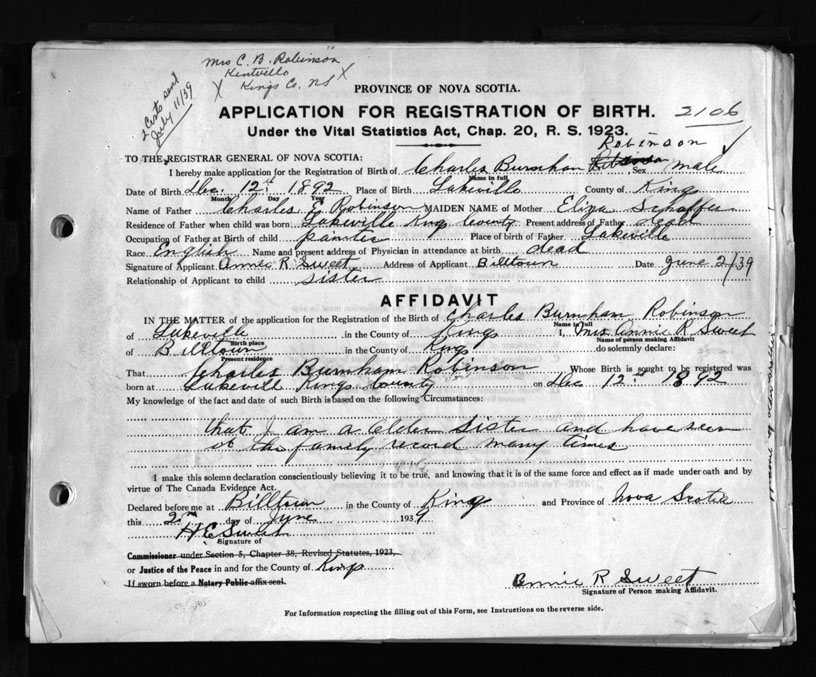 Mrs C. B. Robinson
Kentville
X Kings Co. NS X
2 Certs sent
July 11/39
PROVINCE OF NOVA SCOTIA.
APPLICATION FOR REGISTRATION OF BIRTH. 2106
Under the Vital Statistics Act, Chap. 20, R. S. 1923.
Robinson ✓
TO THE REGISTRAR GENERAL OF NOVA SCOTIA:
I hereby make application for the Registration of Birth of Charles Burnham Sex male
Name in full
Date of Birth Dec. 12 1892 Place of Birth Lakeville County of Kings
Month Day Year
Name of Father Charles E Robinson MAIDEN NAME of Mother Eliza Schaffer
Residence of Father when child was born Lakeville Kings County Present address of Father dead
Occupation of Father at Birth of child painter Place of birth of Father Lakeville
Race English Name and present address of Physician in attendance at birth dead
Signature of Applicant Annie R Sweet Address of Applicant Billtown Date June 2/39
Relationship of Applicant to child sister
AFFIDAVIT
IN THE MATTER of the application for the Registration of the Birth of Charles Burnham Robinson
Name in full
of Lakeville in the County of Kings I, Mrs Annie R Sweet
Birth place Name of person making Affidavit
of Billtown in the County of Kings do solemnly declare:
Present residence
That Charles Burnham Robinson Whose Birth is sought to be registered was
born at Lakevill Kings County on Dec 12 1892
My knowledge of the fact and date of such Birth is based on the following Circumstances:
that I am a elder sister and have seen
of the family record many times
I make this solemn declaration conscientiously believing it to be true, and knowing that it is of the same force and effect as if made under oath and by
virtue of The Canada Evidence Act.
Declared before me at Billtown in the County of Kings and Province of Nova Scotia
this 2 day of June 1939
H E
Signature of
Commissioner under Section 5, Chapter 38, Revised Statutes, 1923,
or Justice of the Peace in and for the County of Kings
If sworn before a Notary Public affix seal.
Annie R Sweet
Signature of Person making Affidavit.
For Information respecting the filling out of this Form, see Instructions on the reverse side.